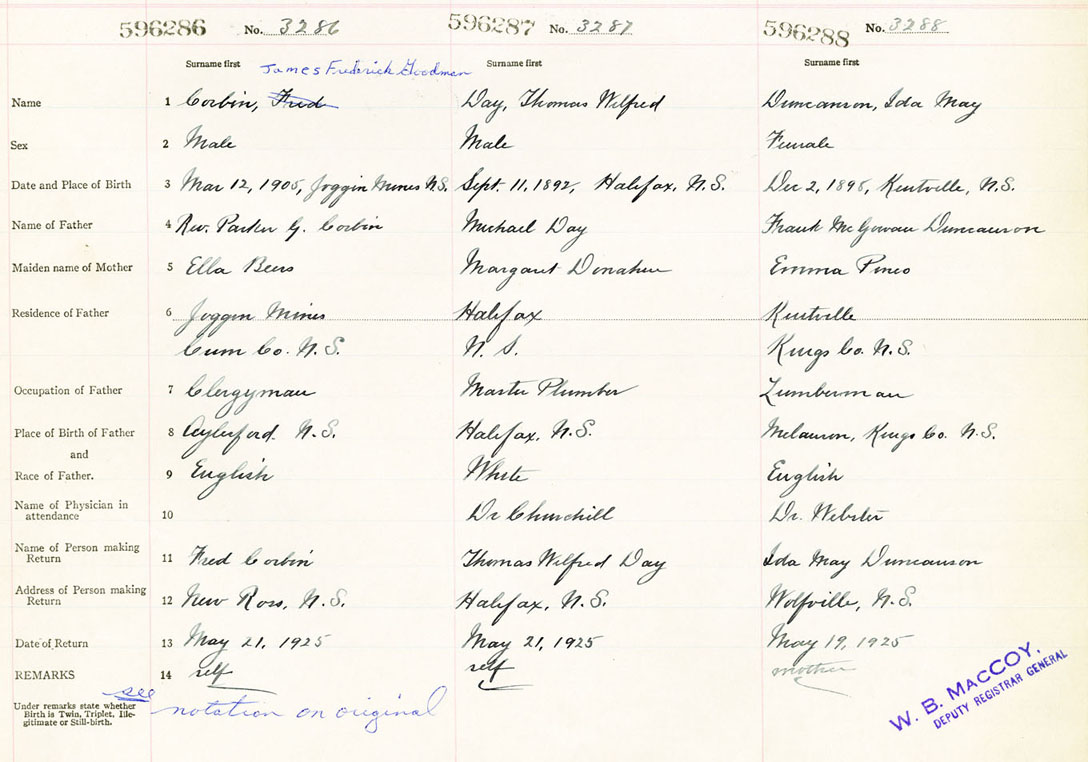 596286 No. 3286 596287 No. 3287 596288 No. 3288
Surname first James Frederick Goodman Surname first Surname first
Name 1 Corbin, Fred Day, Thomas Wilfred Duncanson, Ida May
Sex 2 Male Male Female
Date and Place of Birth 3 Mar 12, 1905, Joggin Mines N.S. Sept. 11, 1892, Halifax, N.S. Dec 2, 1895, Kentville, N.S.
Name of Father 4 Rev. Parker G. Corbin Michael Day Frank McGowan Duncanson
Maiden name of Mother 5 Ella Beers Margaret Donahue Emma Pineo
Residence of Father 6 Joggin Mines Halifax Kentville
Cum Co. N.S. N.S. Kings Co. N.S.
Occupation of Father 7 Clergyman Master Plumber Lumberman
Place of Birth of Father 8 Aylesford. N.S. Halifax, N.S. Melanson, Kings Co. N.S.
and
Race of Father. 9 English White English
Name of Physician in
attendance 10 Dr Churchill Dr. Webster
Name of Person making
Return 11 Fred Corbin Thomas Wilfred Day Ida May Duncanson
Address of Person making
Return 12 New Ross, N.S. Halifax, N.S. Wolfville, N.S.
Date of Return 13 May 21, 1925 May 21, 1925 May 19, 1925
REMARKS 14 self self mother
see notation on original
Under remarks state whether
Birth is Twin, Triplet, Ille-
gitimate or Still-birth.
W. B. MACCOY,
DEPUTY REGISTRAR GENERAL